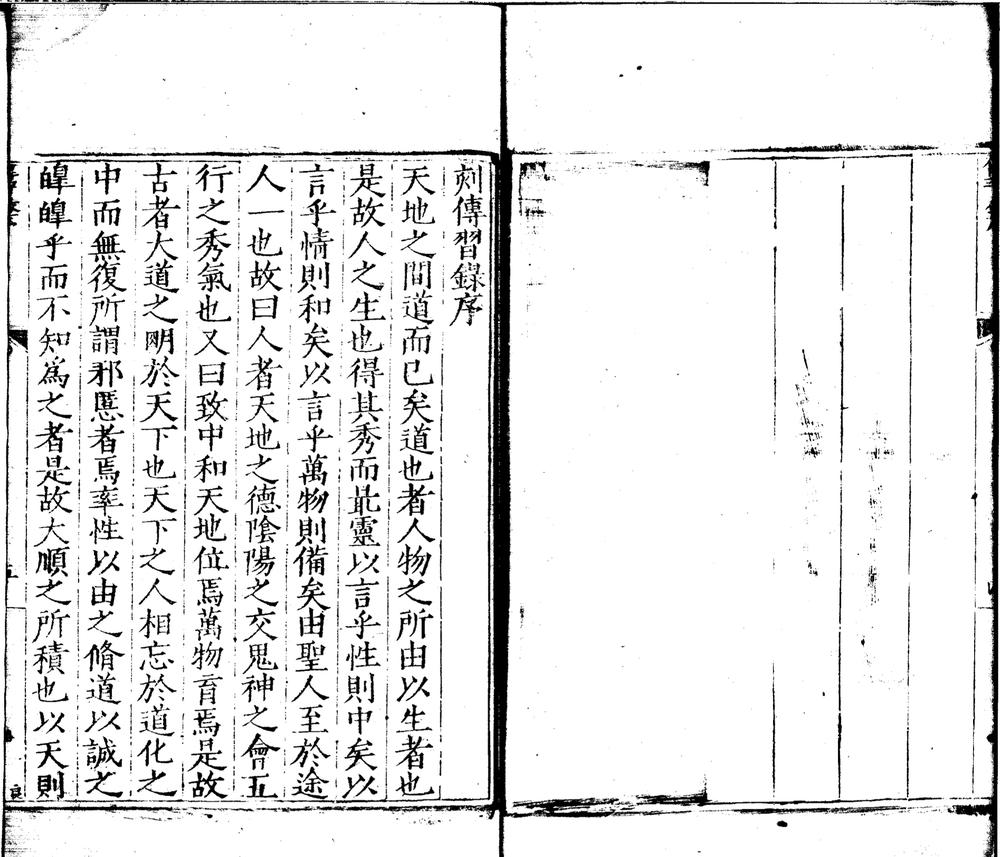 刻傳習錄序
天地之間道而已矣道也者人物之所由以生者也
是故人之生也得其秀而最靈以言乎性則中矣以
言乎情則和矣以言乎萬物則備矣由聖人至於途
人一也故曰人者天地之德陰陽之交鬼神之會五
行之秀氣也又曰致中和天地位焉萬物育焉是故
古者大道之明於天下也天下之人相忘於道化之
中而無復所謂邪慝者焉率性以由之脩道以誠之
皥皥乎而不知為之者是故大順之所積也以天則